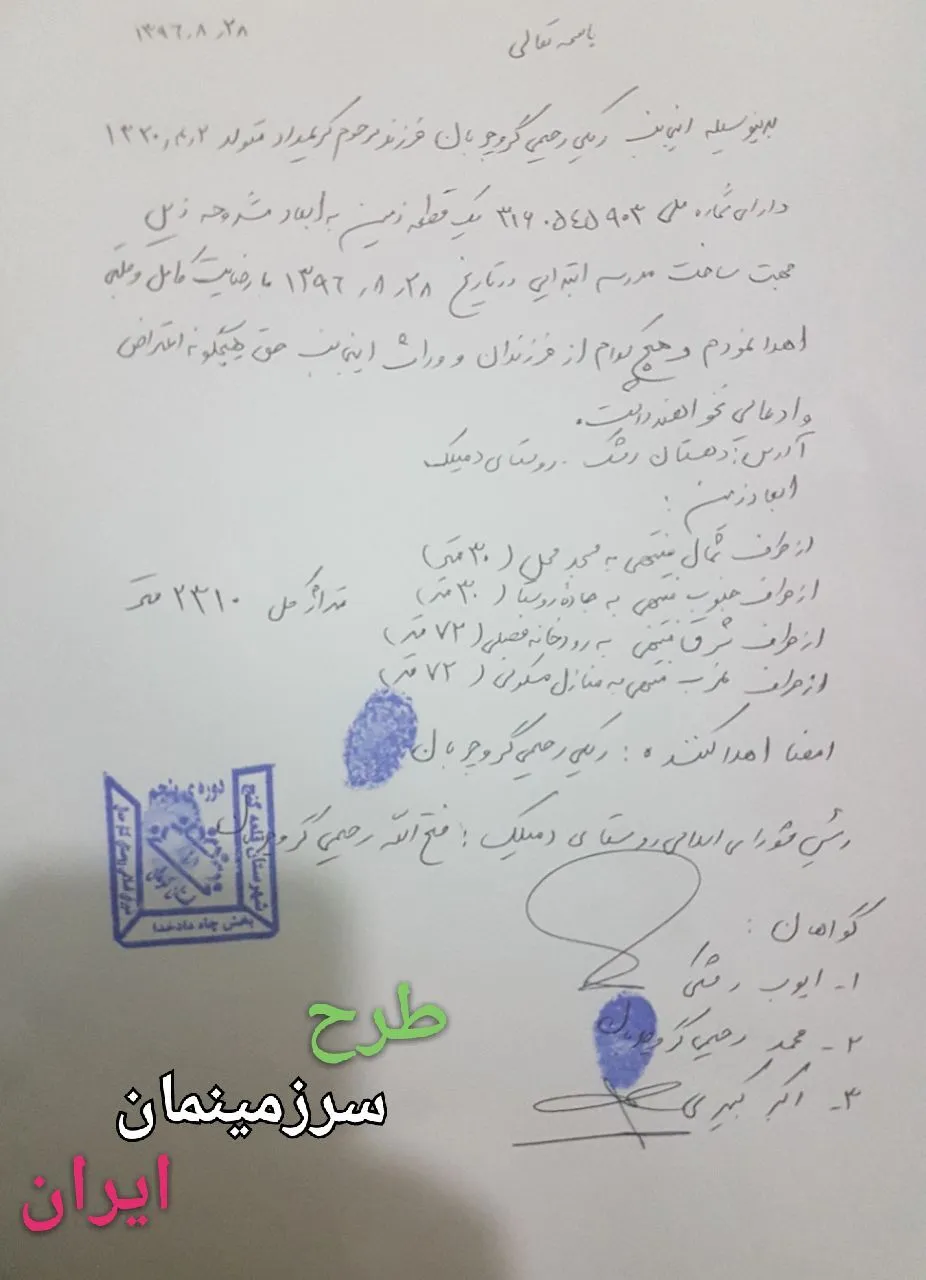 ۱۳۹۶،۸،۲۸
باسمه تعالی
بدینوسیله اینجانب رحیمی گروچوبان فرزند مرحوم کریمداد متولد ۱۳۲۰،۴،۲
دارای شماره ملی ۳۱۶۰۵۴۵۹۰۳ یک قطعه زمین به ابعاد مشروحه ذیل
جهت ساخت مدرسه ابتدایی در تاریخ ۱۳۹۶،۸،۲۸ با رضایت کامل و قلبی
اهدا نمودم و هیچ کدام از فرزندان و وراث اینجانب حق هیچگونه اعتراض
و ادعایی نخواهند داشت.
آدرس: دهستان رشک - روستای دمیلک
ابعاد زمین :
از طرف شمال منتهی به مسجد محل (۳۰ متر)
از طرف جنوب منتهی به جاده روستا (۳۰ متر)
متراژ کل ۲۳۱۰ متر
از طرف شرق منتهی به رودخانه فصلی (۷۲ متر)
از طرف غرب منتهی به منازل مسکونی (۷۲ متر)
امضا اهدا کننده : رحیمی گروچوبان
رئیس شورای اسلامی روستای دمیلک : فتح الله رحیمی گروچوبان
دوره ی پنجم
شهرستان قلعه گنج
بخش چاه دادخدا
گواهان :
۱- ایوب رشکی
۲- محمد رحیمی گروچوبان
۳- اکبر کبیری
طرح
سرزمینمان
ایران